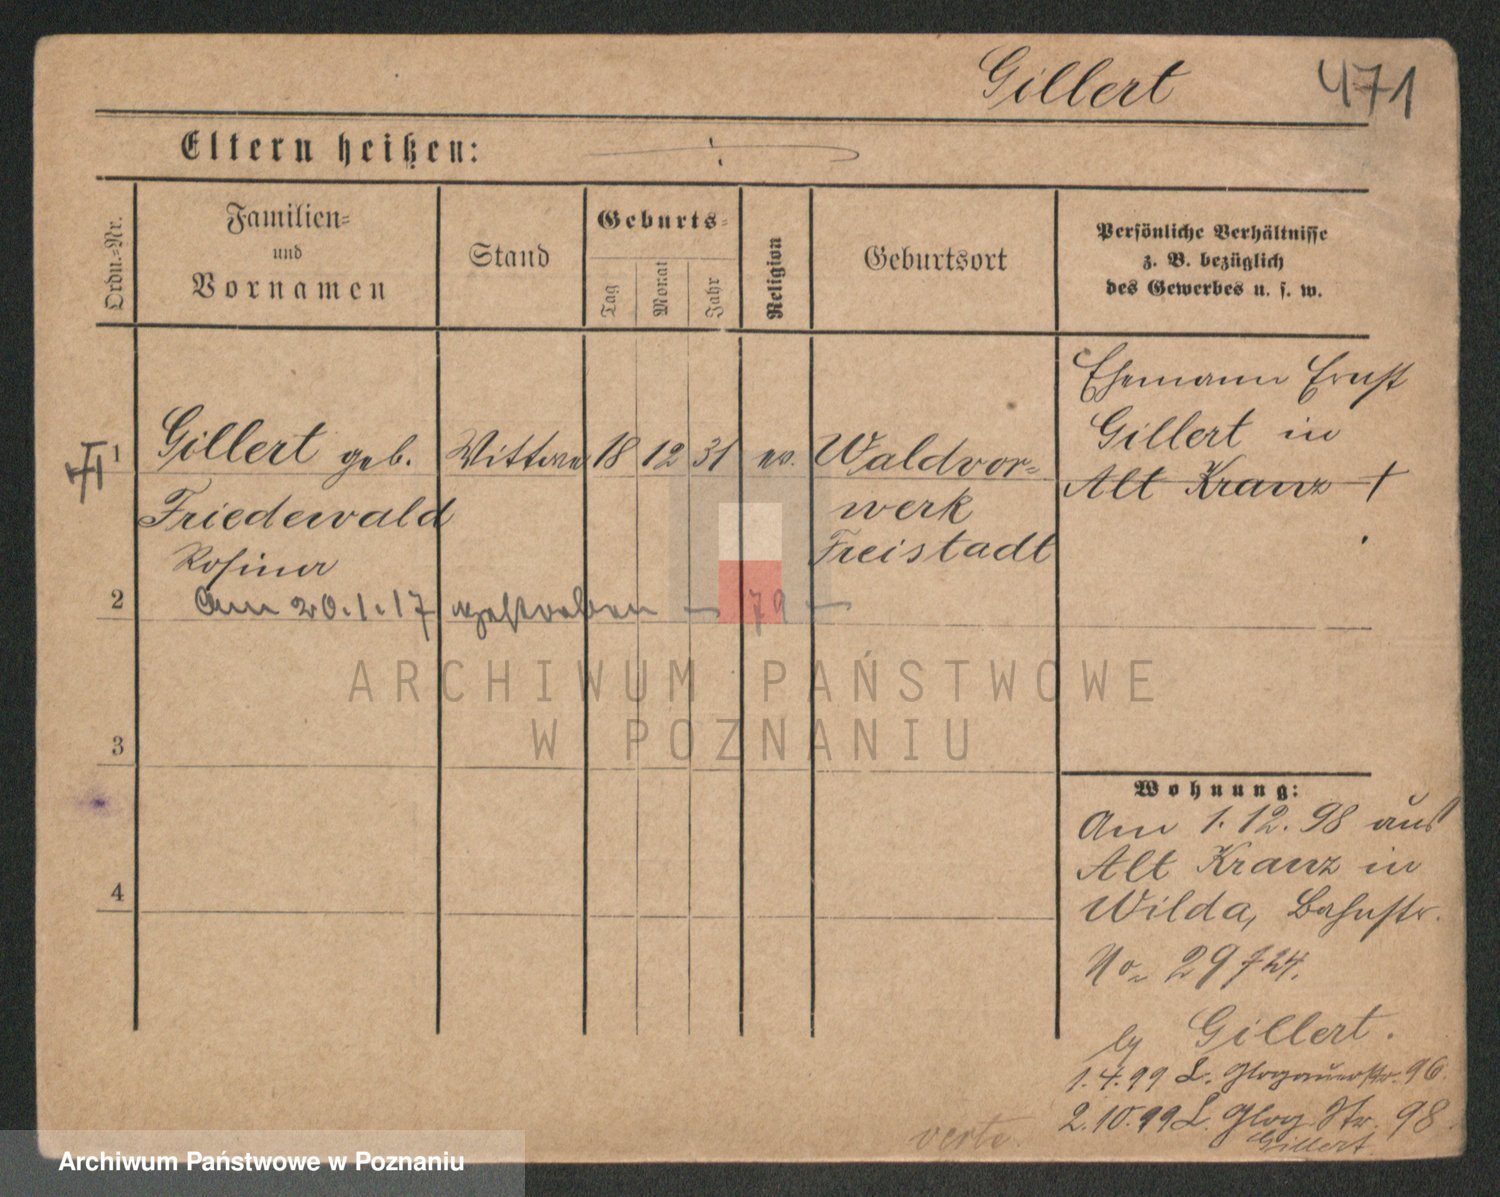 Gillert 471
Eltern heißen:
Ordn.=Nr.
Familien=
und
Vornamen
Stand
Geburts=
Tag
Monat
Jahr
Religion
Geburtsort
Persönliche Verhältnisse
z. B. bezüglich
des Gewerbes u. s. w.
1
Gillert geb.
Friedewald
Rosina
Wittwe
18
12
31
ev.
Waldvor=
werk
Freistadt
Ehemann Ernst
Gillert in
Alt Kranz †
2
Am 20.1.17 gestorben — 79 —
3
4
Wohnung:
Am 1.12.98 aus
Alt Kranz in
Wilda, Bahnstr.
No 29
Gillert.
1.4.99 L. Glogauerstr. 96.
2.10.99 L. Glog. Str. 98.
Gillert
verte.
ARCHIWUM PAŃSTWOWE
W POZNANIU
Archiwum Państwowe w Poznaniu